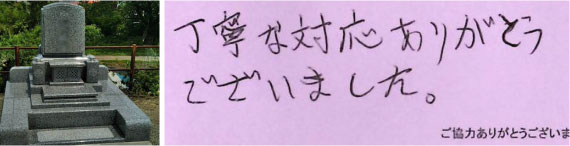 丁寧な対応ありがとう
ございました。
ご協力ありがとうございま